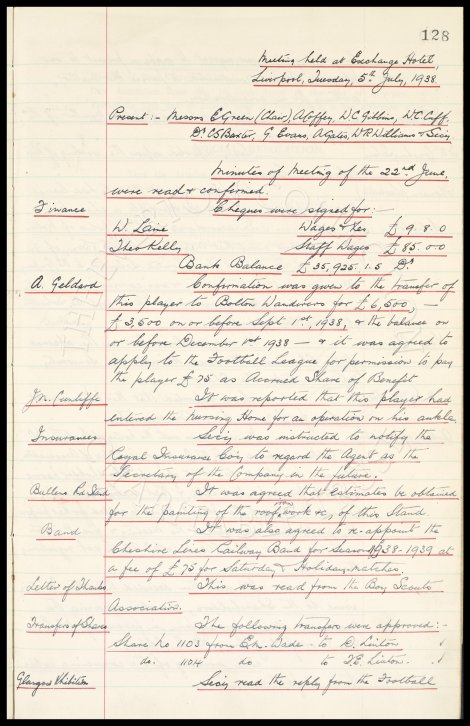 128
Meeting held at Exchange Hotel,
Liverpool, Tuesday, 5th July, 1938.
Present :- Messrs E. Green (Chair), A. Coffey, W. C. Gibbins, W. C. Cuff,
Dr C. S. Baxter, G. Evans, A. Gates, W. R. Williams & Secy
Minutes of Meeting of the 22nd June,
were read & confirmed.
Finance Cheques were signed for :-
W. Laine Wages & Xes £ 9. 8. 0
Theo Kelly Staff Wages £ 85. 0. 0
Bank Balance £ 35,925. 1. 5 Dr
A. Geldard Confirmation was given to the transfer of
this player to Bolton Wanderers for £6,500, —
£3,500 on or before Sept 1st, 1938, & the balance on
or before December 1st 1938 — & it was agreed to
apply to the Football League for permission to pay
the player £75 as Accrued Share of Benefit
J.N. Cunliffe It was reported that this player had
entered the Nursing Home for an operation on his ankle.
Insurances Secy was instructed to notify the
Royal Insurance Coy to regard the Agent as the
Secretary of the Company in the future.
Bullens Rd Stand It was agreed that estimates be obtained
for the painting of the roof, work &c, of this Stand
Band It was also agreed to re-appoint the
Cheshire Lines Railway Band for season 1938-1939 at
a fee of £75 for Saturday & Holiday matches.
Letter of Thanks This was read from the Boy Scouts
Association.
Transfers of Shares The following transfers were approved :-
Share No 1103 from Wade to Linton
do. 1104 do to Linton.
Glasgow Exhibition Secy read the reply from the Football